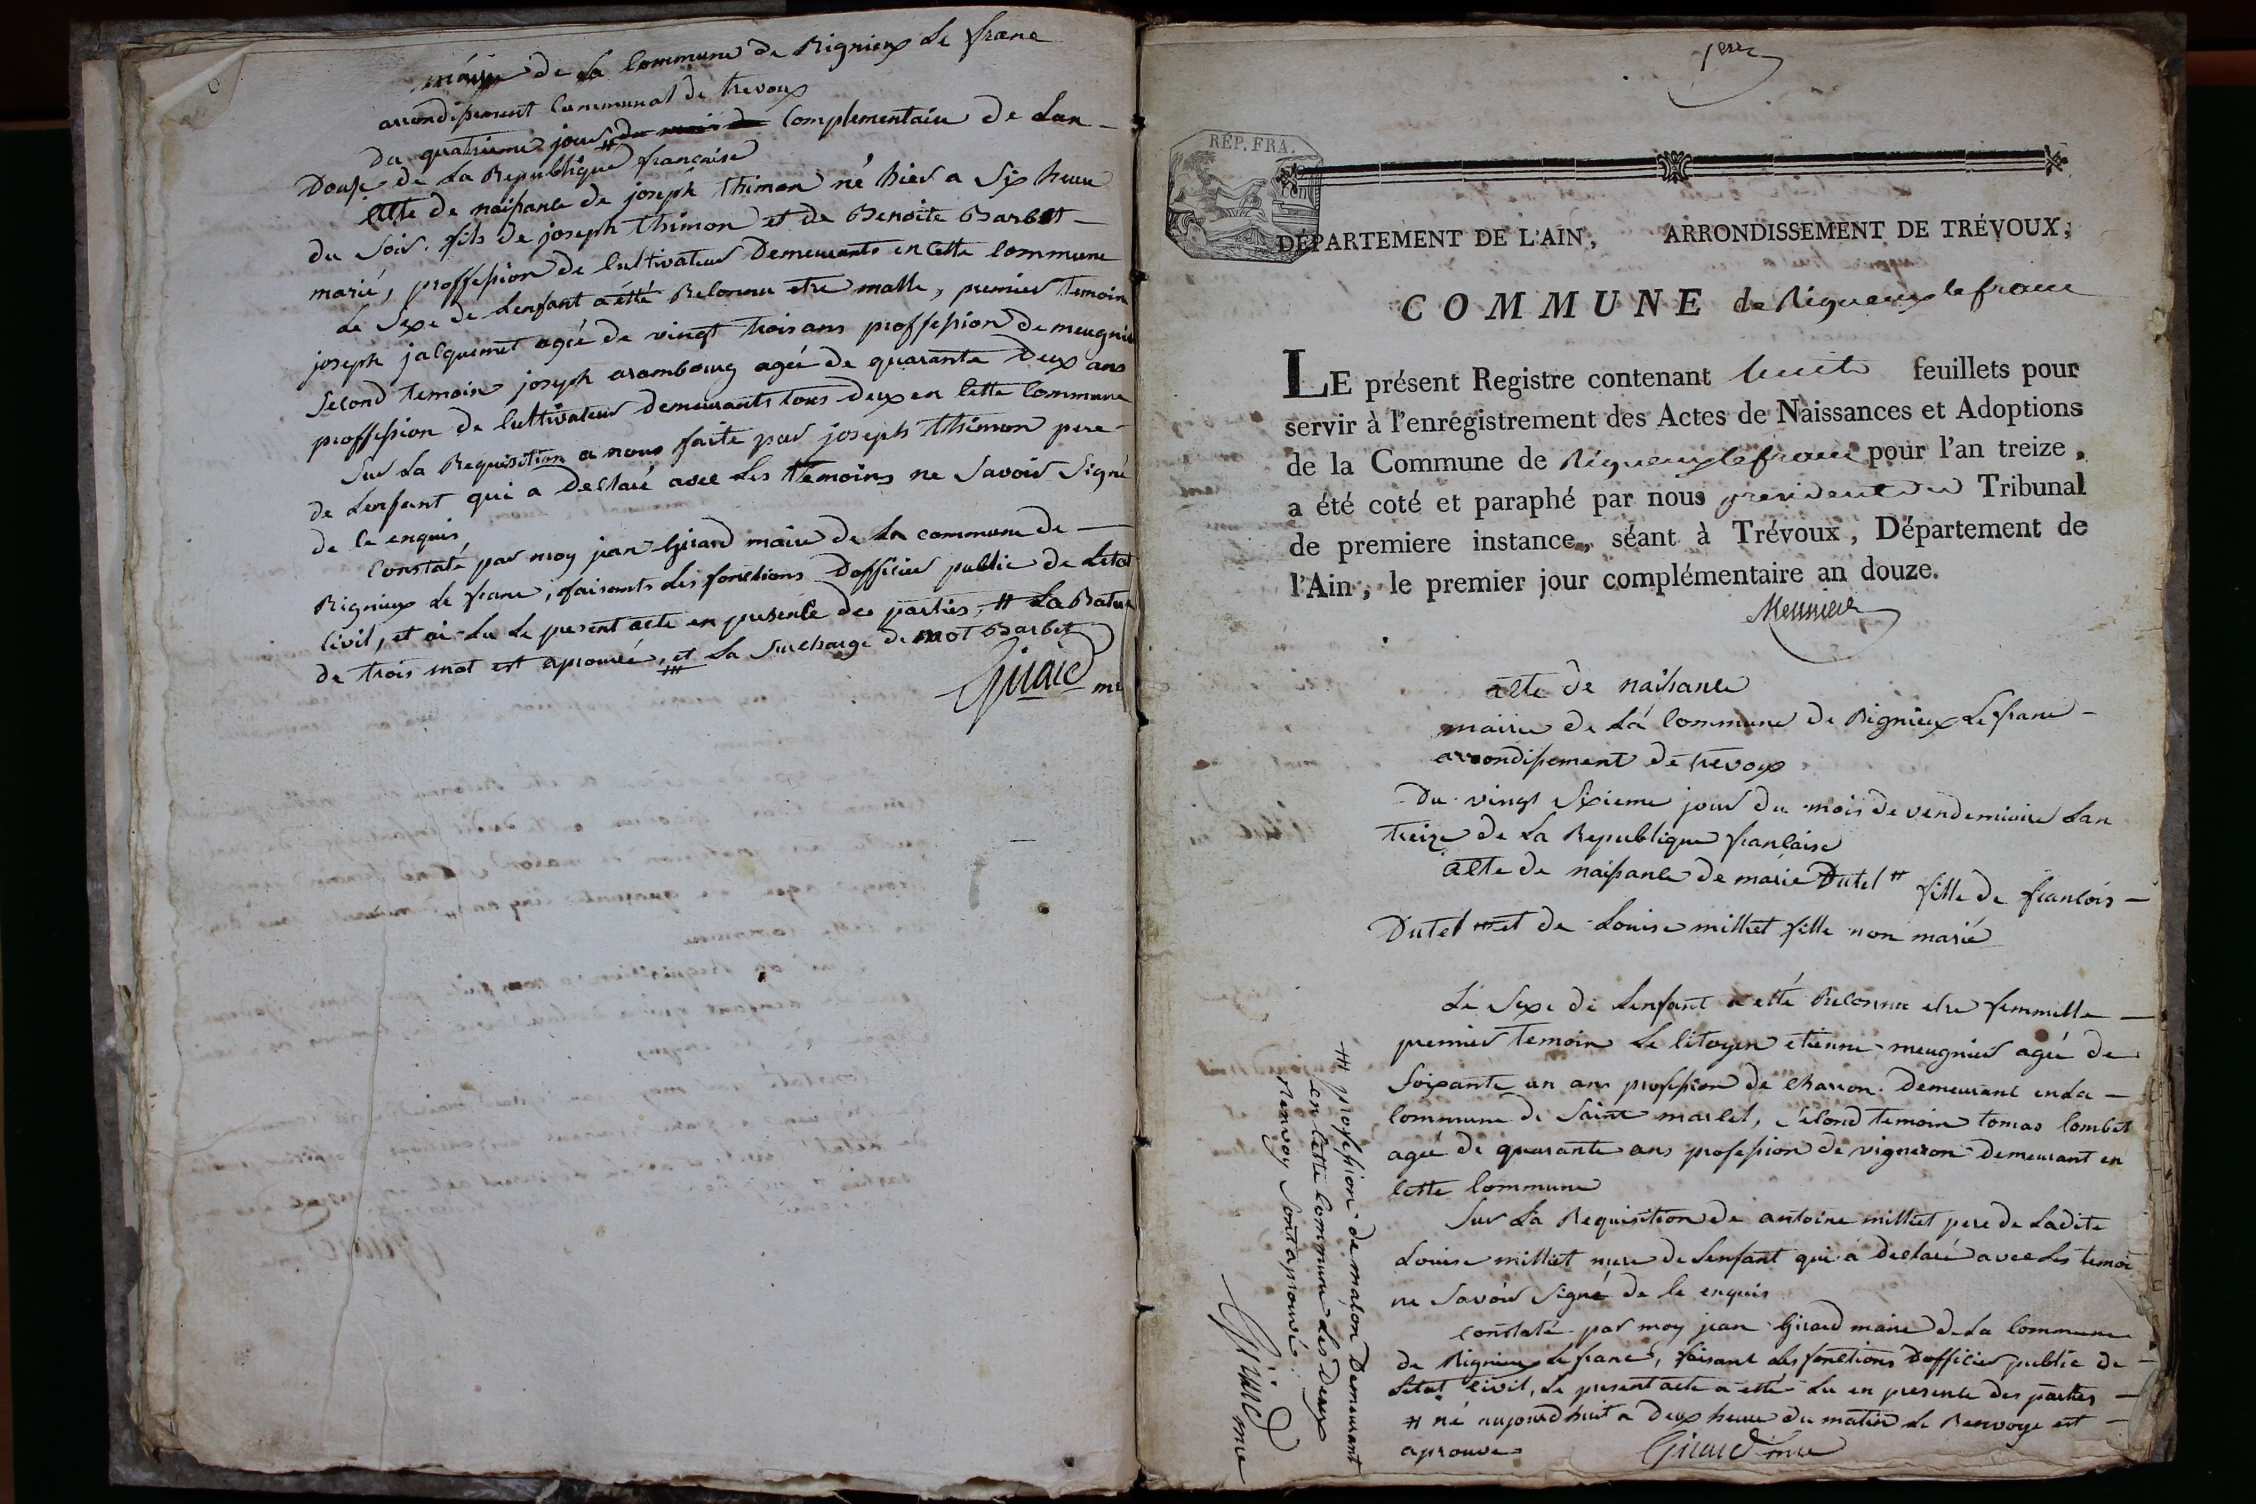 mairie de La Commune de Rignieux Le franc
arrondissement Communal de trevoux
Du quatrieme jour # du mois de Complementaire de Lan -
Douze de La Republique française
Acte de naissance de joseph thimon né hier a Six heure
du Soir. fils de joseph thimon et de Benoite Barbet -
marié, proffession de Cultivateur Demeurants en Cette Commune
Le Sexe de Lenfant a étté Reconnu etre malle, premier temoin
joseph jacquemet ageé de vingt trois ans proffession de meugnie
Second temoin joseph arambourg ageé de quarante Deux ans
proffession de Cultivateur demeurants tous deux en Cette Commune
Sur La Requisition a nous faite par joseph thimon pere -
de Lenfant qui a Declaré avec Les temoins ne Savoir Signé
de Ce enquis,
Constaté par moy jean Girard maire de La commune de -
Rignieux Le franc, faisants Les fonctions Dofficier public de Letat
Civil, et ai Lu Le present acte en presence des parties, # La Rature
de trois mot est aprouvée, et La Surcharge de mot Barbet
Girard me
1er
RÉP. FRA.
DÉPARTEMENT DE L'AIN, ARRONDISSEMENT DE TRÉVOUX,
COMMUNE de Rigneux le franc
LE présent Registre contenant huit feuillets pour
servir à l'enrégistrement des Actes de Naissances et Adoptions
de la Commune de Rigneux le franc pour l'an treize,
a été coté et paraphé par nous president du Tribunal
de premiere instance, séant à Trévoux, Département de
l'Ain, le premier jour complémentaire an douze.
Meunier
acte de naissance
mairie de La Commune de Rignieux Le franc -
arrondissement de trevoux
Du vingt Sixieme jour du mois de vendemiaire Lan
treize de La Republique francaise
acte de naissance de marie Dutel # fille de francois -
Dutel ## et de Louise milliet fille non marié
Le Sexe de Lenfant a etté Reconnu etre femmelle -
premier temoin Le Citoyen etienne meugnier ageé de
Soixante un ans profession de charron. Demeurant en La -
Commune de Saint marcel, Second temoin tomas Combet
ageé de quarante ans profession de vigneron Demeurant en
Cette Commune
Sur La Requisition de antoine milliet pere de Ladite
Louise milliet mere de Lenfant qui a Declaré avec Les temoi
ne Savoir Signé de Ce enquis
constaté par moy jean Girard maire de La Commune
de Rignieux Le franc, faisant Les fonctions Dofficier public de -
Letat Civil, Le present acte a etté Lu en presence des parties -
# né aujourdhuit a Deux heure du matin Le Renvoye est -
aprouve
Girard me
## profession de maçon Demeurant
en Cette Commune Les Deux
Renvoy Sont aprouvé
Girard me